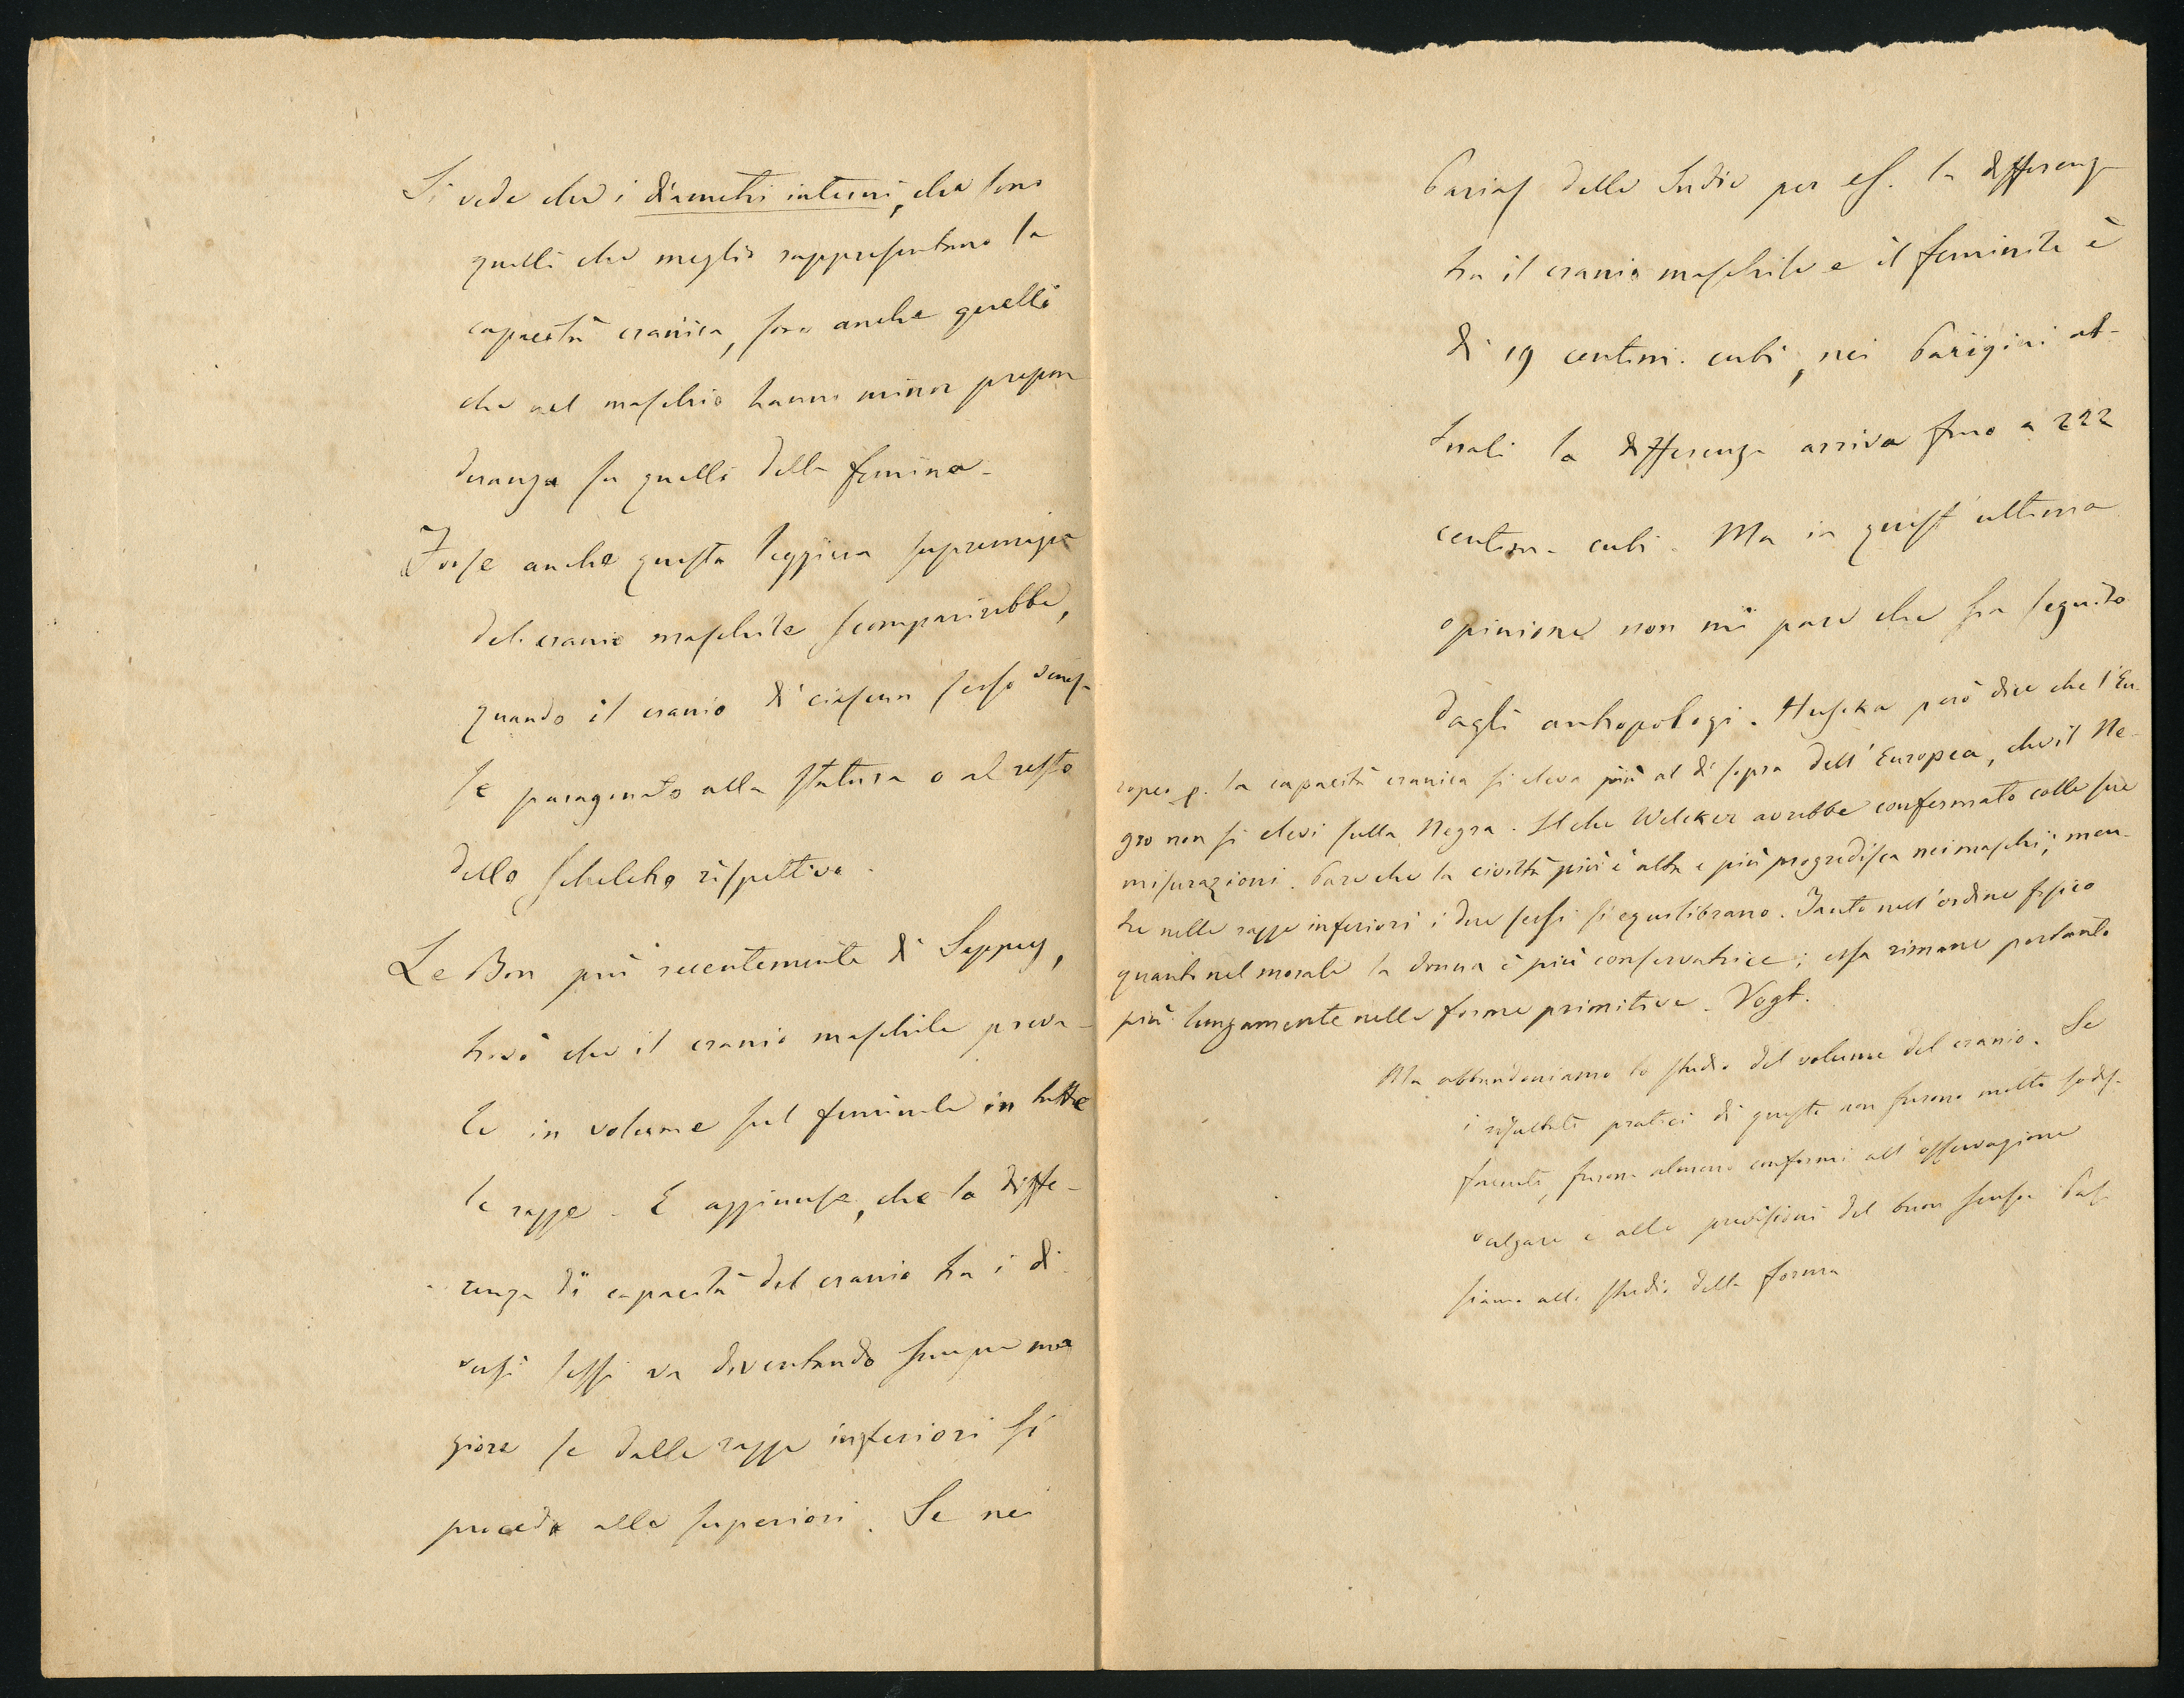 Si vede che i diametri interni, che sono
quelli che meglio rappresentano la
capacità cranica, sono anche quelli
che nel maschio hanno minor prepon
deranza su quelli della femina.
Forse anche questa leggiera supremazia
del cranio maschile scomparirebbe,
quando il cranio di ciascun sesso venis-
se paragonato alla statura o al resto
dello scheletro rispettivo.
Le Bon più recentemente di Sappey,
trovò che il cranio maschile preva-
le in volume sul feminile in tutte
le razze. E aggiunse, che la diffe-
renza di capacità del cranio tra i di
versi sessi va diventando sempre mag
giore se dalle razze inferiori si
procede alle superiori. Se nei
Parias delle Indie per es. la differenza
tra il cranio maschile e il feminile è
di 19 centim. cubi, nei Parigini at-
tuali la differenza arriva fino a 222
centim. cubi. Ma in quest'ultima
opinione non mi pare che sia seguito
dagli antropologi. Huscka però dice che l'Eu-
ropeo p. la capacità cranica si eleva più al di sopra dell'Europea, che il Ne-
gro non si elevi sulla Negra. Il che Welcker avrebbe confermato colle sue
misurazioni. Pare che la civiltà più è alta e più progredisca nei maschi; men-
tre nelle razze inferiori i due sessi si equilibrano. Tanto nell'ordine fisico
quanto nel morale la donna è più conservatrice; essa rimane pertanto
più lungamente nelle forme primitive. Vogt.
Ma abbandoniamo lo studio del volume del cranio. Se
i risultati pratici di questo non furono molto sodis-
facenti, furono almeno conformi all'osservazione
volgare e alle previsioni del buon senso. Pas-
siamo allo studio della forma